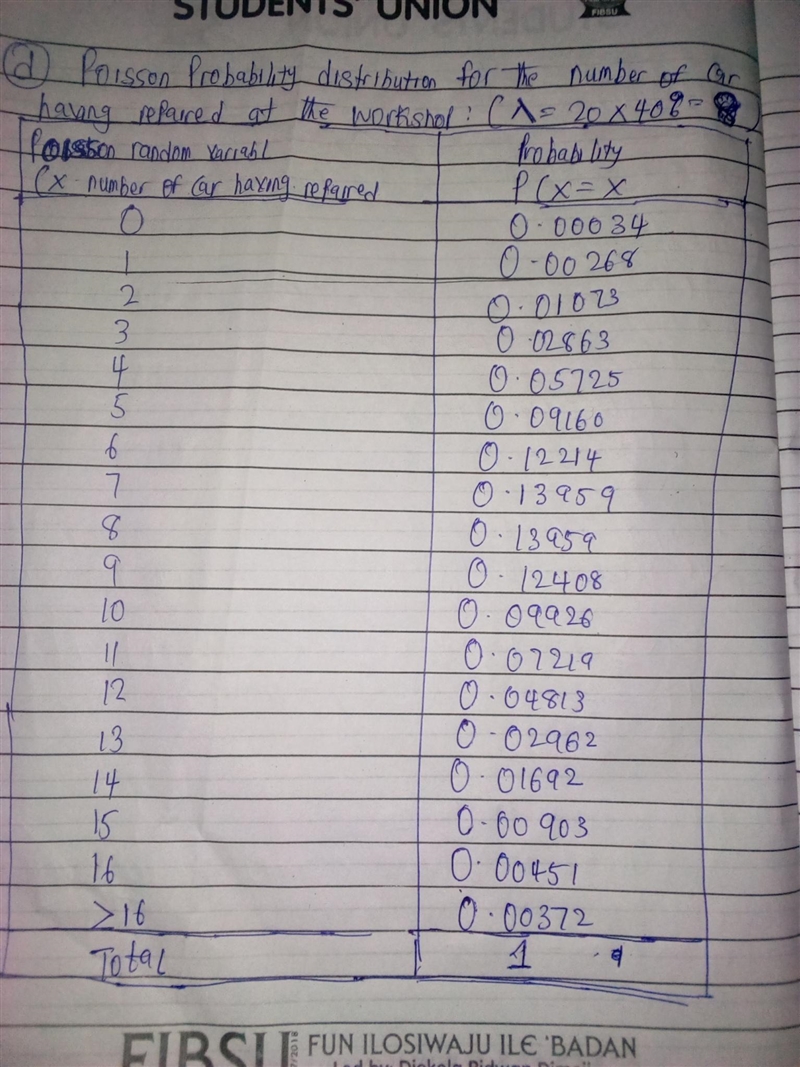 STUDENTS' UNION
FIBSU
d Poisson Probability distribution for the number of Car
having repaired at the workshop: (λ = 20 x 40% = 8)
Poisson random variabl Probability
(x number of Car having repaired P(x = x
0 0.00034
1 0.00268
2 0.01073
3 0.02863
4 0.05725
5 0.09160
6 0.12214
7 0.13959
8 0.13959
9 0.12408
10 0.09926
11 0.07219
12 0.04813
13 0.02962
14 0.01692
15 0.00903
16 0.00451
>16 0.00372
Total 1
FIBSU FUN ILOSIWAJU ILE 'BADAN